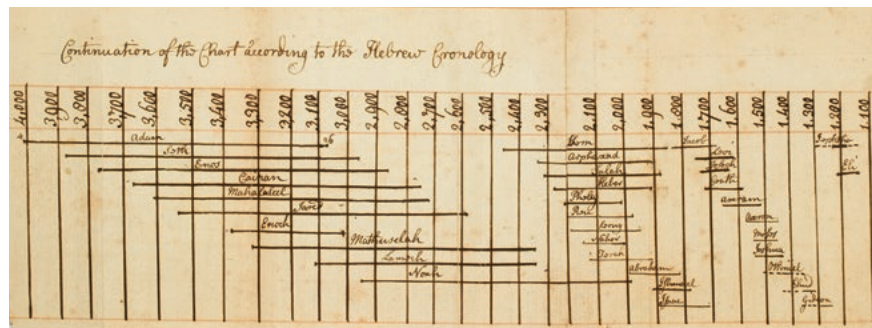 Continuation of the Chart according to the Hebrew Cronology
4,000 3,900 3,800 3,700 3,600 3,500 3,400 3,300 3,200 3,100 3,000 2,900 2,800 2,700 2,600 2,500 2,400 2,300 2,100 2,000 1,900 1,800 1,700 1,600 1,500 1,400 1,300 1,200 1,100
Adam
Seth
Enos
Cainan
Mahalaleel
Jared
Enoch
Mathuselah
Lamech
Noah
Shem
Salah
Heber
Phaleg
Reu
Nahor
Terah
Abraham
Ishmael
Isaac
Jacob
Levi
Amram
Aaron
Moses
Joshua
Othniel
Ehud
Gideon
Eli